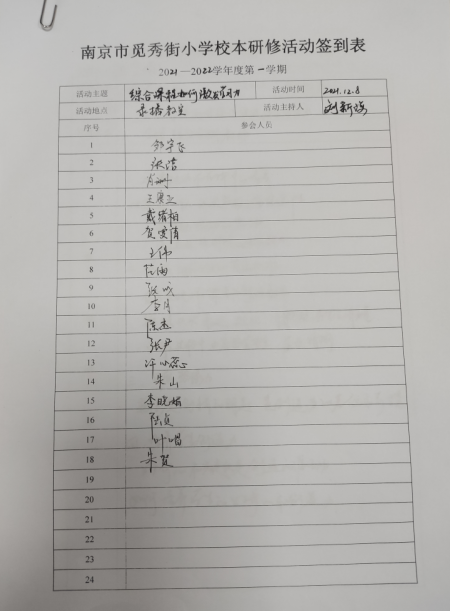 南京市觅秀街小学校本研修活动签到表
2021—2022学年度第一学期
活动主题 综合课程如何激发学习力 活动时间 2021.12.8
活动地点 录播教室 活动主持人
序号 参会人员
1
2 张浩
3
4
5 戴绪相
6 贺雯清
7 王伟
8 范雨
9
10 李月
11 陈杰
12 张尹
13 汪心蕊
14 朱山
15 李晓娟
16 陆贞
17 叶唱
18 朱贺
19
20
21
22
23
24